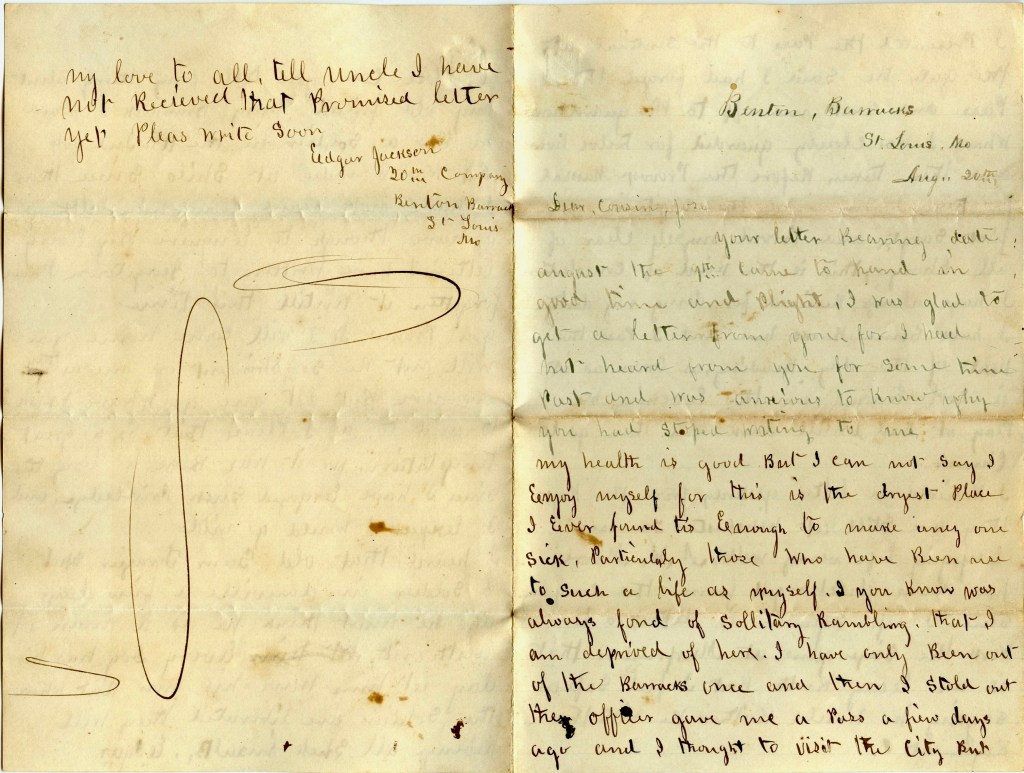 my love to all, till uncle I have
not Recieved that Promised letter
yet Pleas write Soon
Eedgar Jackson
20th Company
Benton Barrack
St Louis
Mo
Benton, Barracks
St. Louis. Mo
Aug. 20th
Dear, Cousin,
your letter Bearing date
august the 9th Came to hand in
good time and Plight, I was glad to
get a letter from you for I had
not heard from you for Some time
Past and was anxious to Know why
you had Stoped writing to me.
my health is good But I can not Say I
Eenjoy myself for this is the dryest Place
I Ever found tis Eenough to make any one
Sick, Particularly those who have Been use
to Such a life as myself. I you Know was
always fond of Sollitary Rambling. that I
am deprived of here. I have only Been out
of the Barracks once and then I Stold out
the officer gave me a Pass a few days
ago and I thought to visit the City But